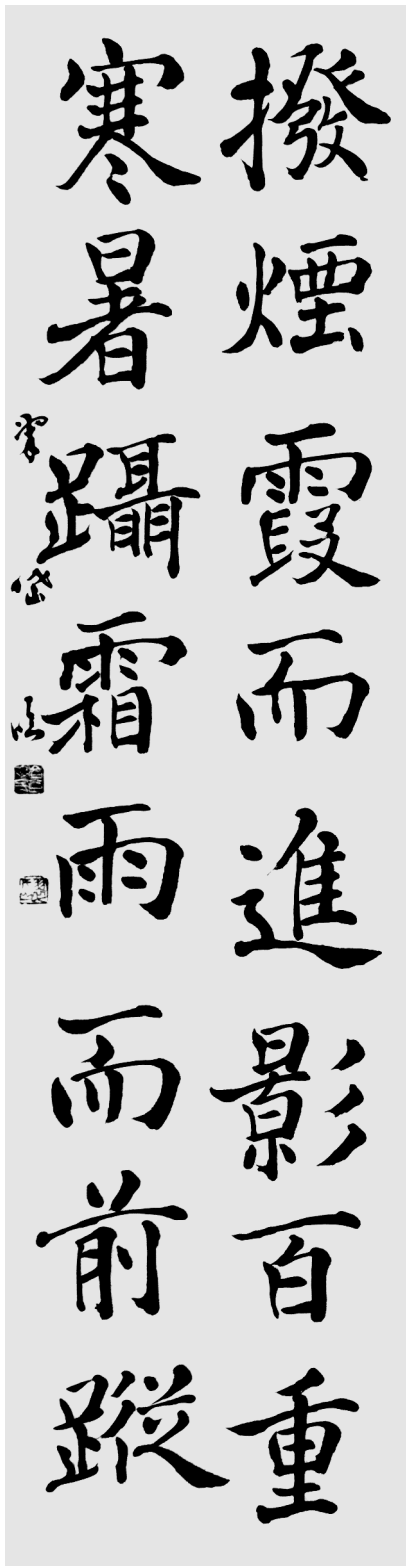 撥煙霞而進影百重
寒暑躡霜雨而前蹤